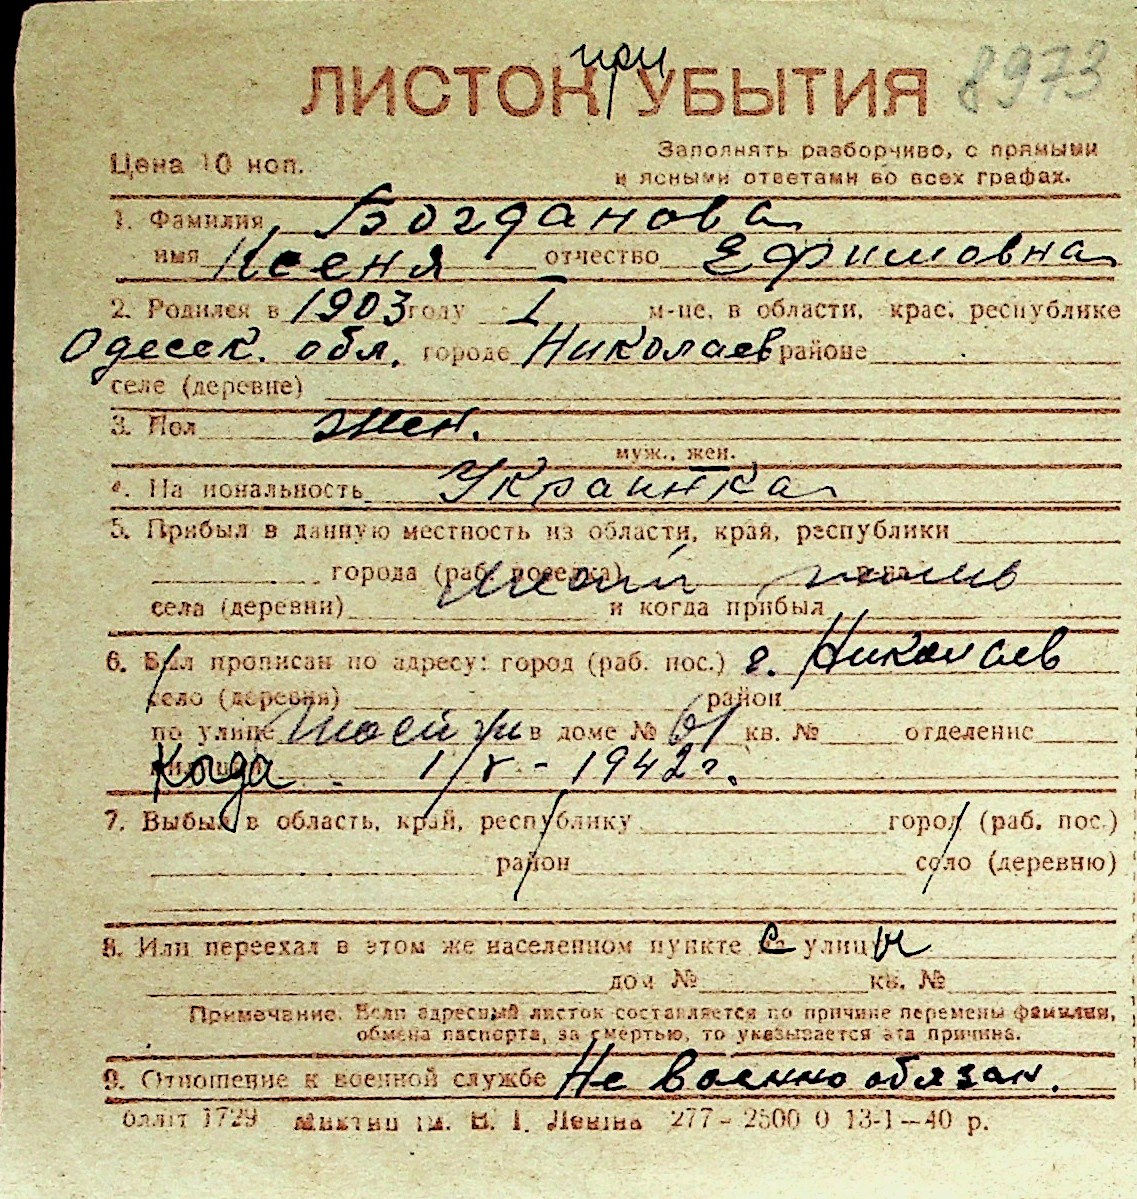 при
ЛИСТОК УБЫТИЯ 8973
Цена 10 коп.
Заполнять разборчиво, с прямыми
и ясными ответами во всех графах.
1. Фамилия Богданова
имя Ксеня отчество Ефимовна
2. Родился в 1903 году I м-це, в области, крае, республике
Одесск. обл. городе Николаев районе
селе (деревне)
3. Пол жен.
муж., жен.
На иональность Украинка
5. Прибыл в данную местность из области, края, республики
города (раб. поселка)
села (деревни) и когда прибыл
6. Был прописан по адресу: город (раб. пос.) г. Николаев
село (деревня) район
по улице в доме № 61 кв. № отделение
Когда 1/V - 1942 г.
7. Выбыл в область, край, республику город (раб. пос.)
район село (деревню)
8. Или переехал в этом же населенном пункте с улицы
дом № кв. №
Примечание. Если адресный листок составляется по причине перемены фамилии,
обмена паспорта, за смертью, то указывается эта причина.
9. Отношение к военной службе Не военно обязан.
1729 ім. В. І. Леніна 277-2500 0 13-1-40 р.